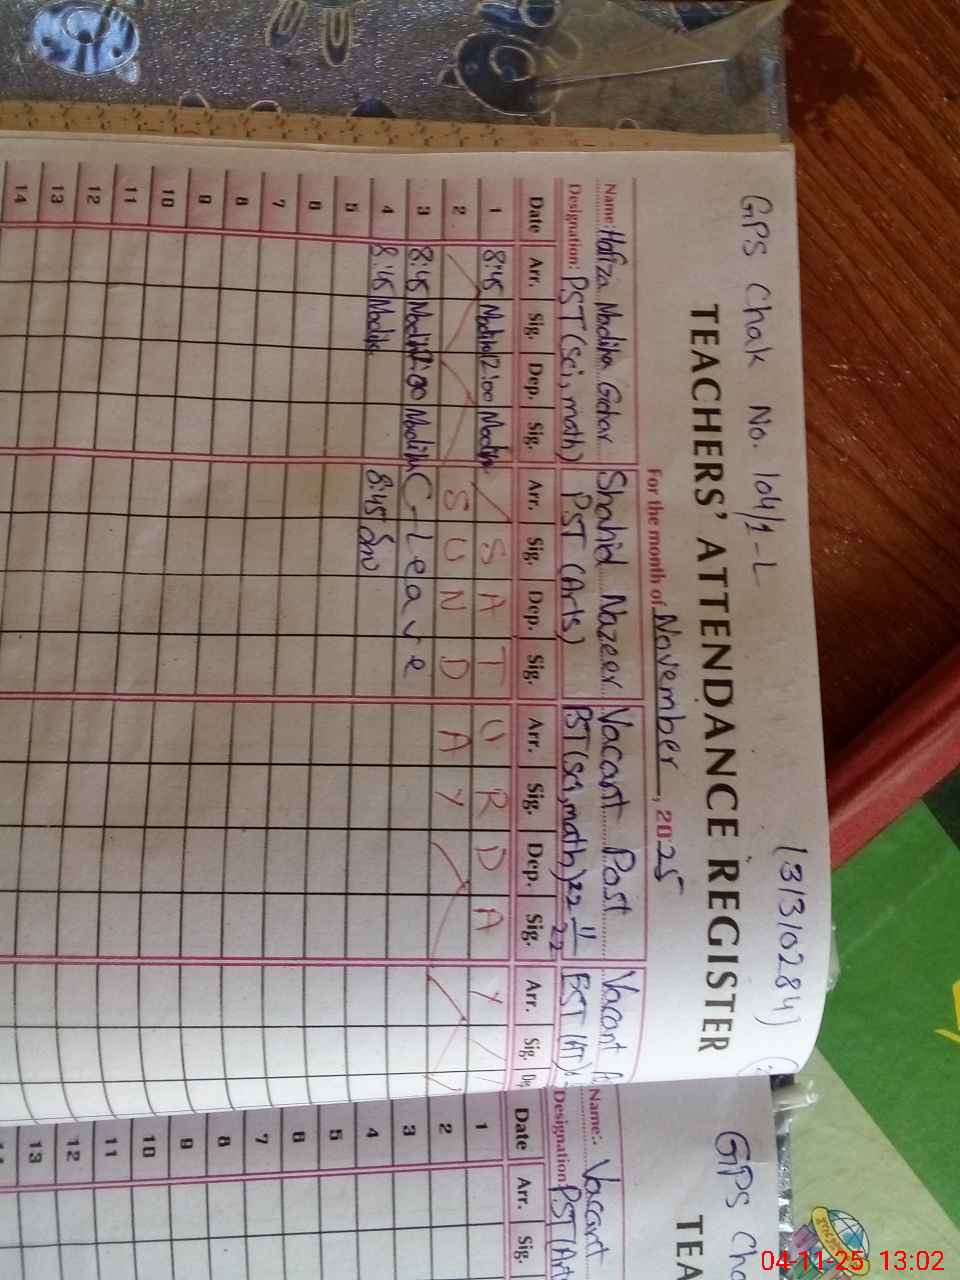 GPS Chak No. 104/1-L (31310284)
TEACHERS' ATTENDANCE REGISTER
For the month of November, 2025
Name: Hafiza Madiha Gohar Shahid Nazeer Vacant Post Vacant
Designation: PST (Sci, math) PST (Arts) PST (Sci, math) 22-11-22 EST (AT)
Date Arr. Sig. Dep. Sig. Arr. Sig. Dep. Sig. Arr. Sig. Dep. Sig. Arr. Sig. Dep.
1 8:45 Madiha 12:00 Madiha S A T U R D A Y
2 S U N D A Y
3 8:45 Madiha 12:00 Madiha C-Leave
4 8:45 Madiha 8:45
5
6
7
8
9
10
11
12
13
14
GPS Cha
TEA
Name:- Vacant
Designation: PST (Art
Date Arr. Sig.
1
2
3
4
5
6
7
8
9
10
11
12
13
04-11-25 13:02